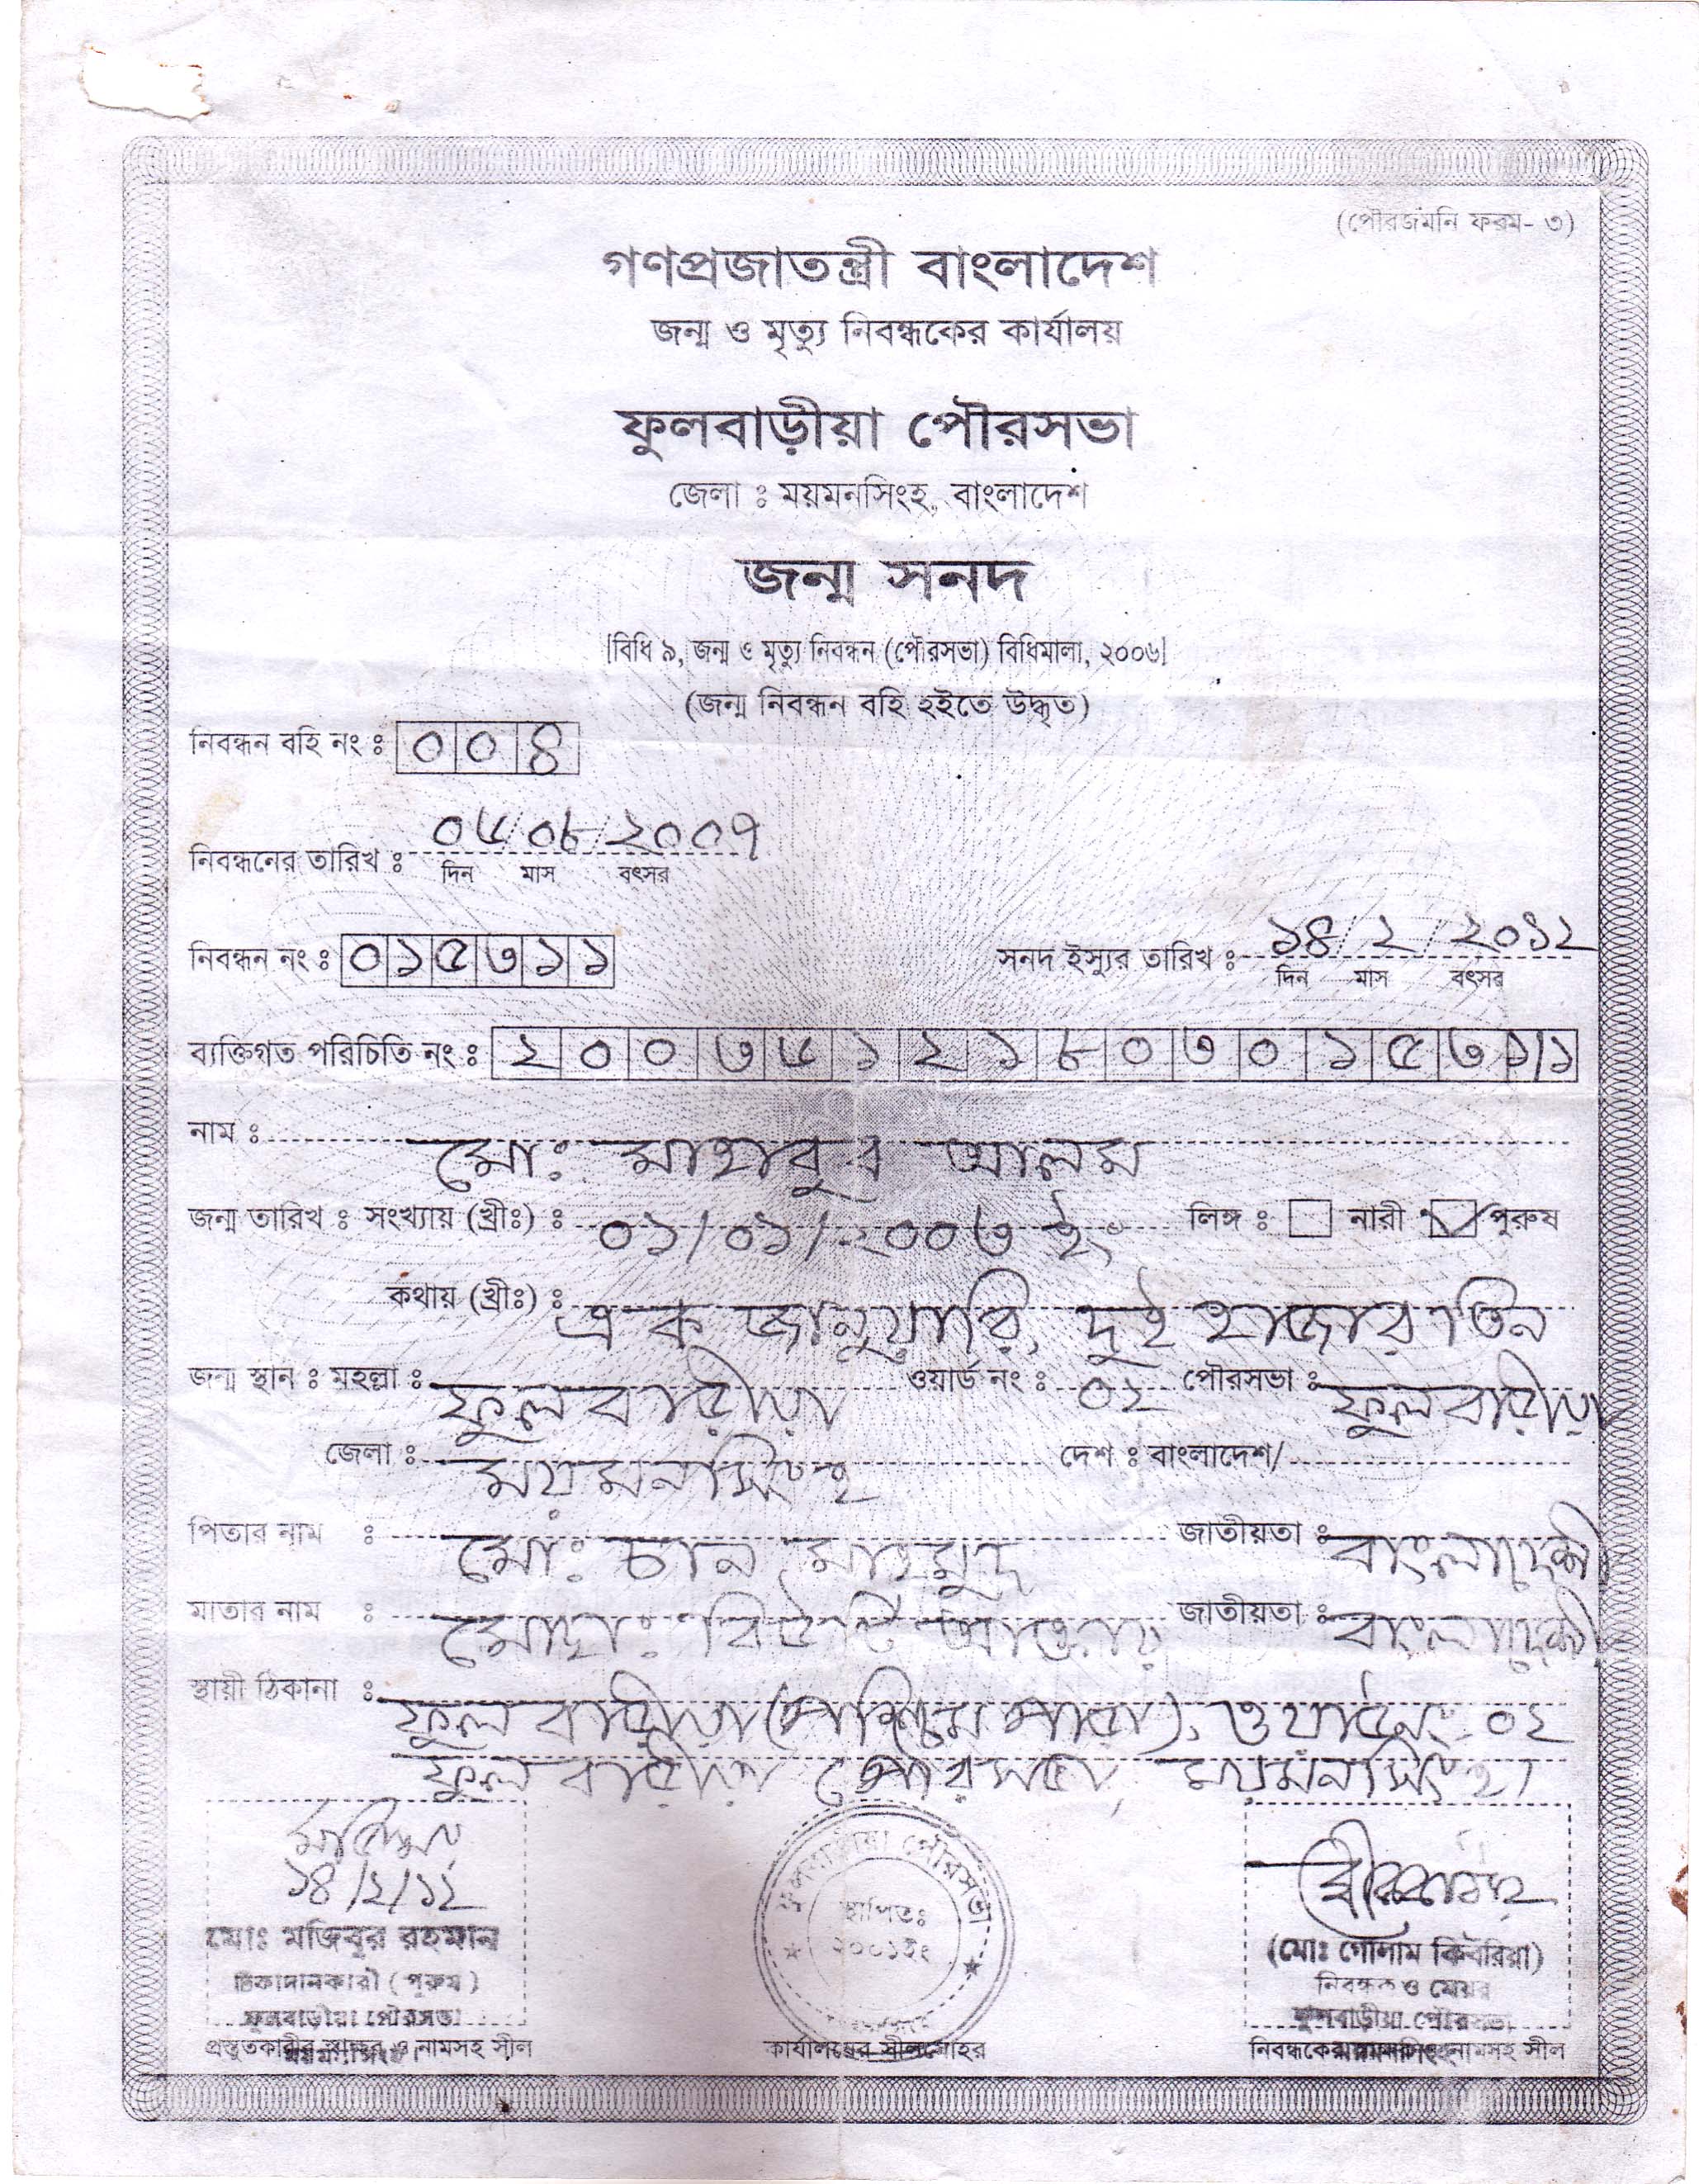 (পৌরজমনি ফরম- ৩)
গণপ্রজাতন্ত্রী বাংলাদেশ
জন্ম ও মৃত্যু নিবন্ধকের কার্যালয়
ফুলবাড়ীয়া পৌরসভা
জেলা ঃ ময়মনসিংহ, বাংলাদেশ
জন্ম সনদ
[বিধি ৯, জন্ম ও মৃত্যু নিবন্ধন (পৌরসভা) বিধিমালা, ২০০৬]
(জন্ম নিবন্ধন বহি হইতে উদ্ধৃত)
নিবন্ধন বহি নং ঃ ০০৪
নিবন্ধনের তারিখ ঃ ০৬/০৮/২০০৭
দিন মাস বৎসর
নিবন্ধন নং ঃ ০১৫৩১১ সনদ ইস্যুর তারিখ ঃ ১৪/২/২০১২
দিন মাস বৎসর
ব্যক্তিগত পরিচিতি নং ঃ ২০০৩৬১২১৮০৩০১৫৩১১
নাম ঃ মো: মাহাবুর আলম
জন্ম তারিখ ঃ সংখ্যায় (খ্রীঃ) ঃ ০১/০১/২০০৩ ইং লিঙ্গ ঃ নারী পুরুষ
কথায় (খ্রীঃ) ঃ এক জানুয়ারি, দুই হাজার তিন
জন্ম স্থান ঃ মহল্লা ঃ ফুলবাড়ীয়া ওয়ার্ড নং ঃ ০২ পৌরসভা ঃ ফুলবাড়ীয়া
জেলা ঃ ময়মনসিংহ দেশ ঃ বাংলাদেশ/
পিতার নাম ঃ মো: চান মাহমুদ জাতীয়তা ঃ বাংলাদেশী
মাতার নাম ঃ মোছা: বিউটি আক্তার জাতীয়তা ঃ বাংলাদেশী
স্থায়ী ঠিকানা ঃ ফুলবাড়ীয়া (পশ্চিম পাড়া), ওয়ার্ড নং ০২
ফুলবাড়ীয়া পৌরসভা, ময়মনসিংহ।
১৪/২/১২
ফুলবাড়ীয়া পৌরসভা
স্থাপিতঃ
২০০১ইং
মোঃ মজিবুর রহমান
টিকাদানকারী (পুরুষ)
ফুলবাড়ীয়া পৌরসভা
(মোঃ গোলাম কিবরিয়া)
নিবন্ধক ও মেয়র
ফুলবাড়ীয়া পৌরসভা
প্রস্তুতকারীর স্বাক্ষর ও নামসহ সীল কার্যালয়ের সীলমোহর নিবন্ধকের নামসহ সীল